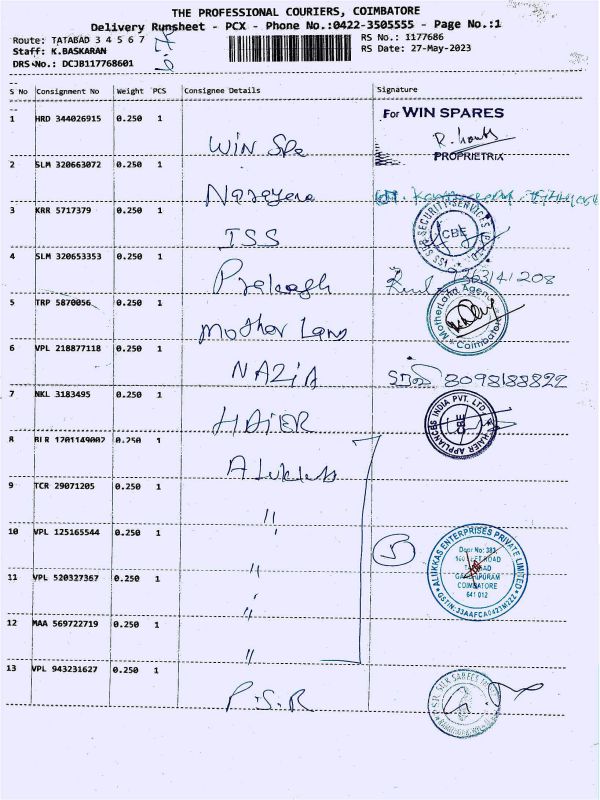 THE PROFESSIONAL COURIERS, COIMBATORE
Delivery Runsheet - PCX - Phone No.:0422-3505555 - Page No.:1
Route: TATABAD 3 4 5 6 7
RS No.: I177686
Staff: K.BASKARAN
RS Date: 27-May-2023
DRS No.: DCJB117768601
S No Consignment No Weight PCS Consignee Details Signature
1 HRD 344026915 0.250 1 WIN Spa For WIN SPARES
PROPRIETRIX
2 SLM 320663072 0.250 1 Narayana
3 KRR 5717379 0.250 1 ISS ISS SDB SECURITY SERVICES CBE
4 SLM 320653353 0.250 1 Prakash 9363141208
5 TRP 5870056 0.250 1 Mother Land MotherLand Agency Coimbatore
6 VPL 218877118 0.250 1 NAZIA 8098188822
7 NKL 3183495 0.250 1 HAIER HAIER APPLIANCES INDIA PVT. LTD CBE
8 BLR 1701149002 0.250 1 Alukkas
9 TCR 29071205 0.250 1 "
10 VPL 125165544 0.250 1 " 5 ALUKKAS ENTERPRISES PRIVATE LIMITED
Door No: 383
100 FEET ROAD
TATABAD
GANDHIPURAM
COIMBATORE
641 012
GSTIN-33AAFCA0423M2ZZ
11 VPL 520327367 0.250 1 "
12 MAA 569722719 0.250 1 "
13 VPL 943231627 0.250 1 P.S.R